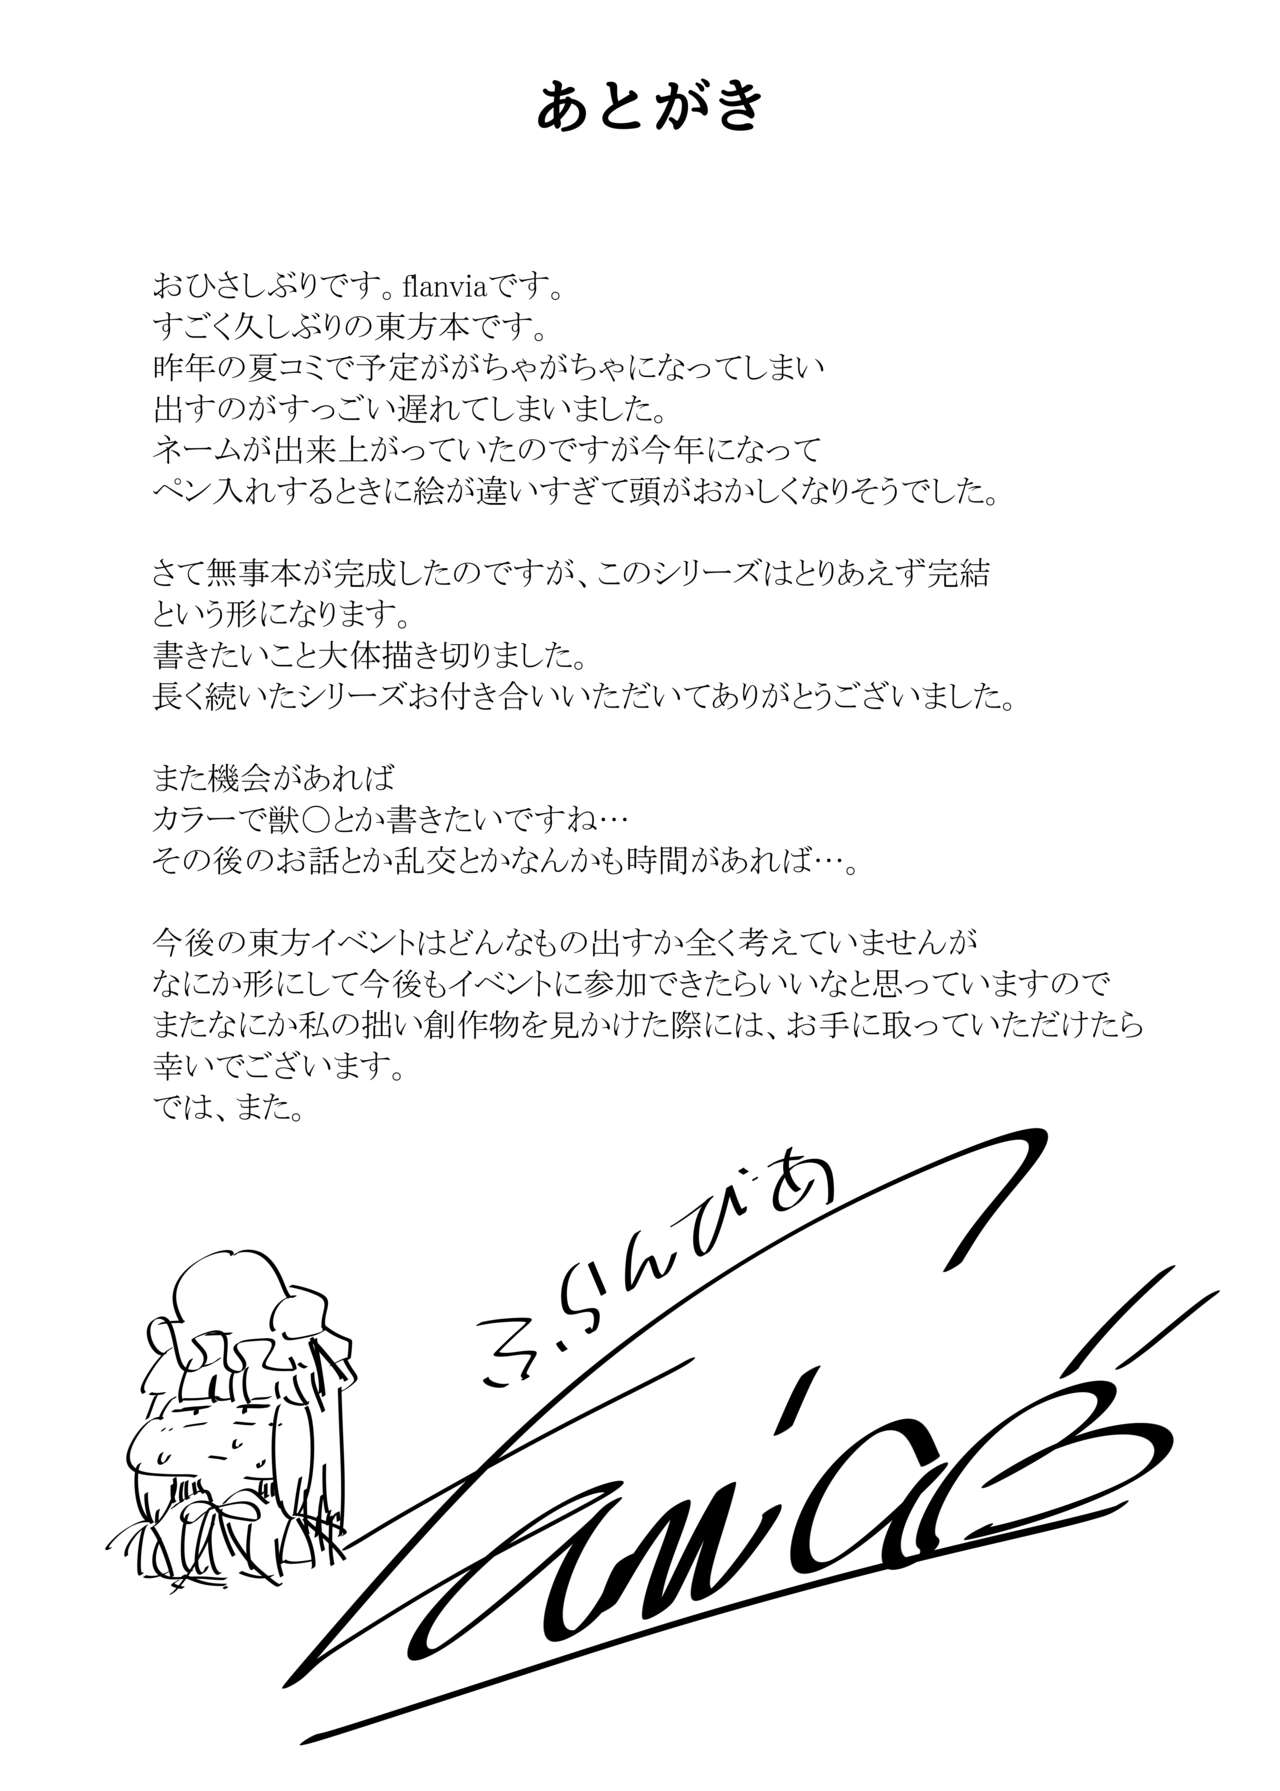 あとがき
おひさしぶりです。flanviaです。
すごく久しぶりの東方本です。
昨年の夏コミで予定ががちゃがちゃになってしまい
出すのがすっごい遅れてしまいました。
ネームが出来上がっていたのですが今年になって
ペン入れするときに絵が違いすぎて頭がおかしくなりそうでした。
さて無事本が完成したのですが、このシリーズはとりあえず完結
という形になります。
書きたいこと大体描き切りました。
長く続いたシリーズお付き合いいただいてありがとうございました。
また機会があれば
カラーで獣〇とか書きたいですね…
その後のお話とか乱交とかなんかも時間があれば…。
今後の東方イベントはどんなもの出すか全く考えていませんが
なにか形にして今後もイベントに参加できたらいいなと思っていますので
またなにか私の拙い創作物を見かけた際には、お手に取っていただけたら
幸いでございます。
では、また。
ふらんびあ
flanvia